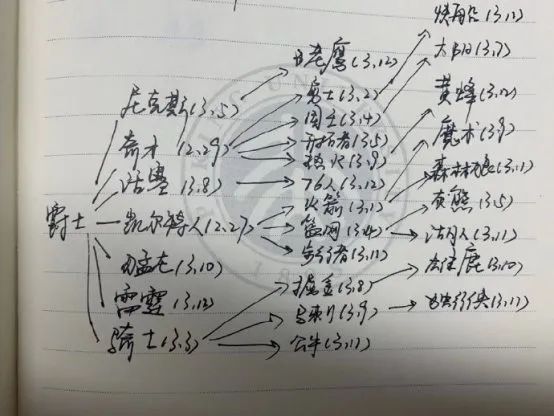 快船(3,11)
老鹰(3,12)
太阳(3,7)
尼克斯(3,5)
勇士(3,2)
黄蜂(3,12)
国王(3,4)
奇才(2,29)
开拓者(3,5)
魔术(3,9)
热火(3,9)
活塞(3,8)
76人(3,12)
森林狼(3,11)
火箭(3,11)
灰熊(3,5)
爵士
凯尔特人(2,27)
篮网(3,4)
步行者(3,11)
湖人(3,11)
猛龙(3,10)
掘金(3,8)
雄鹿(3,10)
雷霆(3,12)
马刺(3,9)
独行侠(3,11)
骑士(3,3)
公牛(3,11)